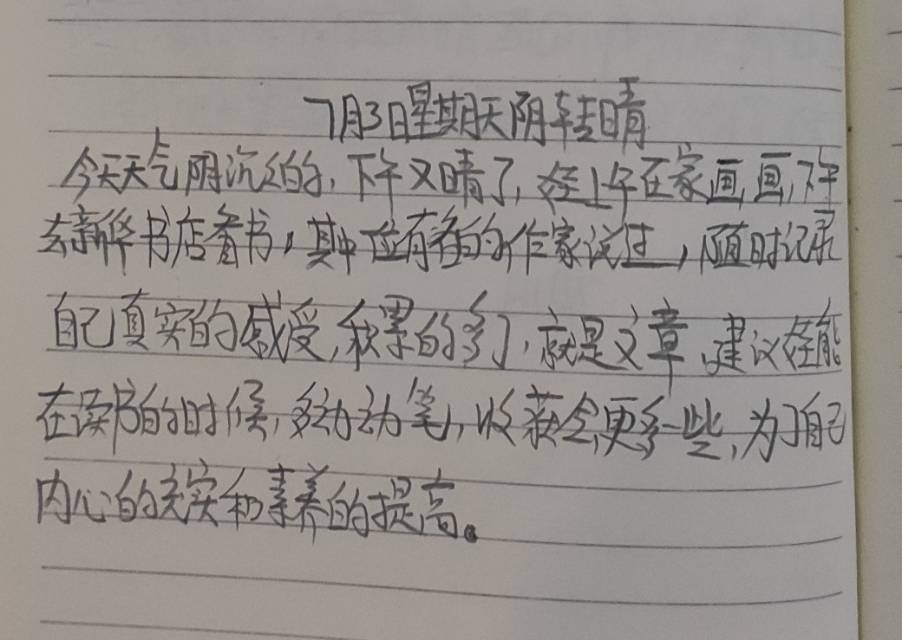 7月3日星期天阴转晴
今天天气阴沉沉的,下午又晴了,婭上午在家画画,下午
去新华书店看书,其中一位有名的作家说过,随时记录
自己真实的感受,积累的多了,就是文章,建议婭能
在读书的时候,多动动笔,收获会更多一些,为了自己
内心的充实和素养的提高。